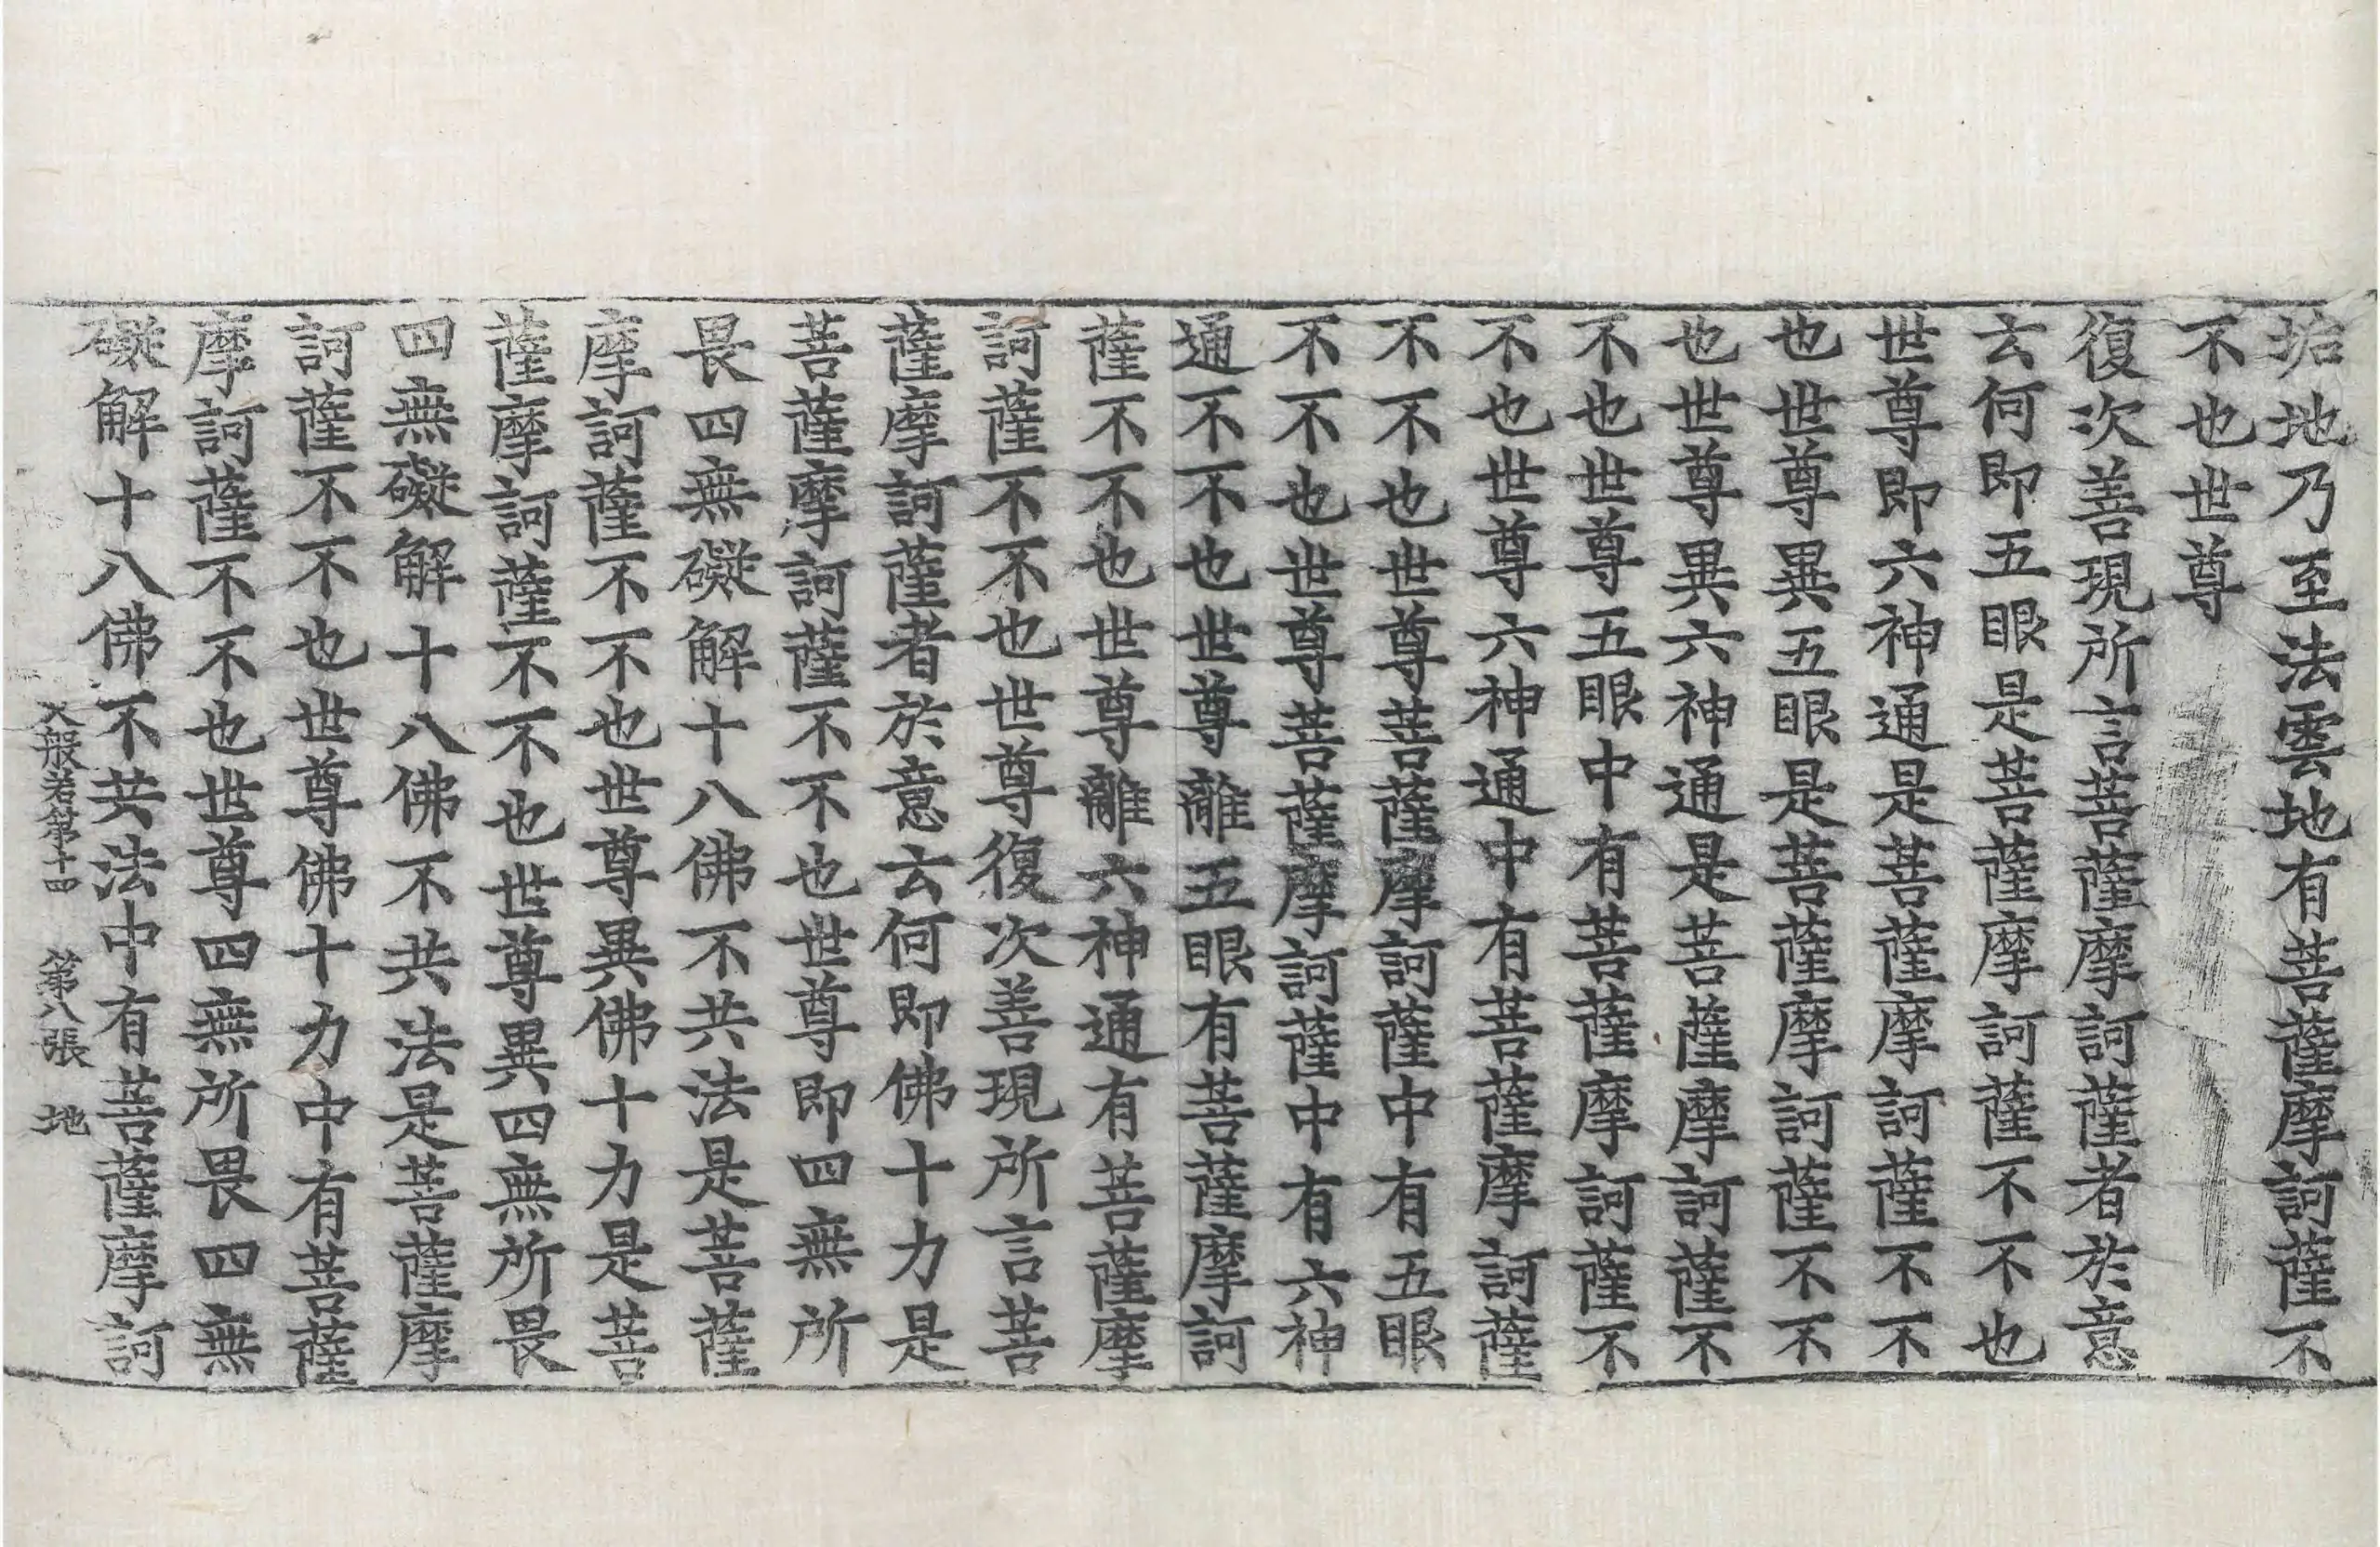 垢地乃至法雲地有菩薩摩訶薩不
不也世尊
復次善現所言菩薩摩訶薩者於意
云何即五眼是菩薩摩訶薩不不也
世尊即六神通是菩薩摩訶薩不不
也世尊異五眼是菩薩摩訶薩不不
也世尊異六神通是菩薩摩訶薩不
不也世尊五眼中有菩薩摩訶薩不
不也世尊六神通中有菩薩摩訶薩
不不也世尊菩薩摩訶薩中有五眼
不不也世尊菩薩摩訶薩中有六神
通不不也世尊離五眼有菩薩摩訶
薩不不也世尊離六神通有菩薩摩
訶薩不不也世尊復次善現所言菩
薩摩訶薩者於意云何即佛十力是
菩薩摩訶薩不不也世尊即四無所
畏四無礙解十八佛不共法是菩薩
摩訶薩不不也世尊異佛十力是菩
薩摩訶薩不不也世尊異四無所畏
四無礙解十八佛不共法是菩薩摩
訶薩不不也世尊佛十力中有菩薩
摩訶薩不不也世尊四無所畏四無
礙解十八佛不共法中有菩薩摩訶
大般若第十四 第八張 地